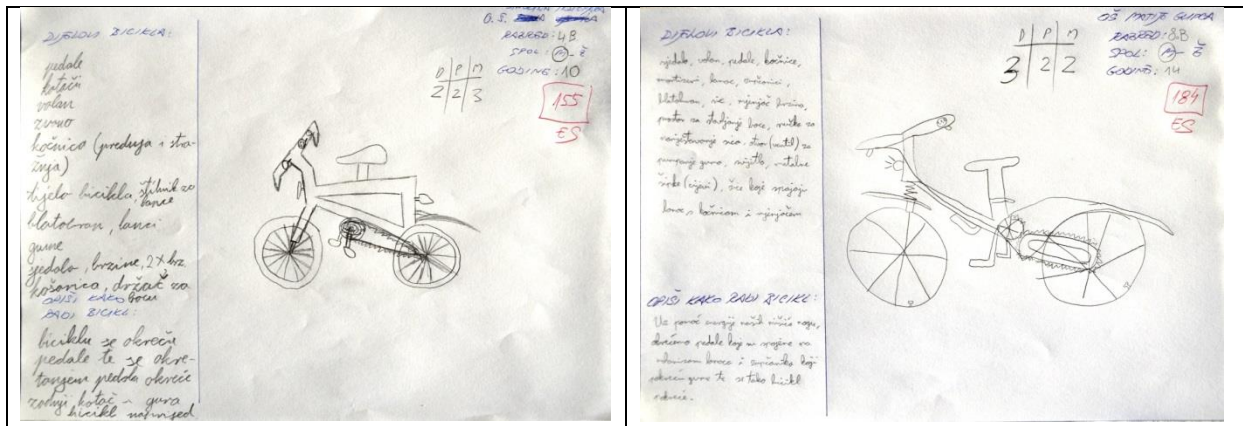 DIJELOVI BICIKLA:
pedale
kotači
volan
zvono
kočnica (prednja i stra-
žnja)
tijelo bicikla, štitnik za
lance
blatobran, lanci
gume
sjedalo, brzine, 2 x brz.
košarica, držač za
bocu
OPIŠI KAKO
RADI BICIKL:
biciklu se okreću
pedale te se okre-
tanjem pedala okreće
zadnji kotač – gura
bicikl naprijed
O.Š.
RAZRED: 4B
SPOL: M - Ž
GODINE: 10
D P M
2 2 3
155
ES
DIJELOVI BICIKLA:
sjedalo, volan, pedale, kočnice,
lanac, zupčanici,
blatobran, mjenjač brzina,
prostor za stavljanje boce, ručke za
(ventil) za
pumpanje guma, svjetlo, metalne
šipke, žice koje spajaju
lanac s kočnicom i mjenjačem
OPIŠI KAKO RADI BICIKL:
Uz pomoć energije naših mišića nogu,
okrećemo pedale koje su spojene na
lanca i zupčanika koji
pokreću gume te se tako bicikl
pokreće.
OŠ MATIJE GUPCA
RAZRED: 8.B
SPOL: M - Ž
GODINE: 14
D P M
3 2 2
184
ES